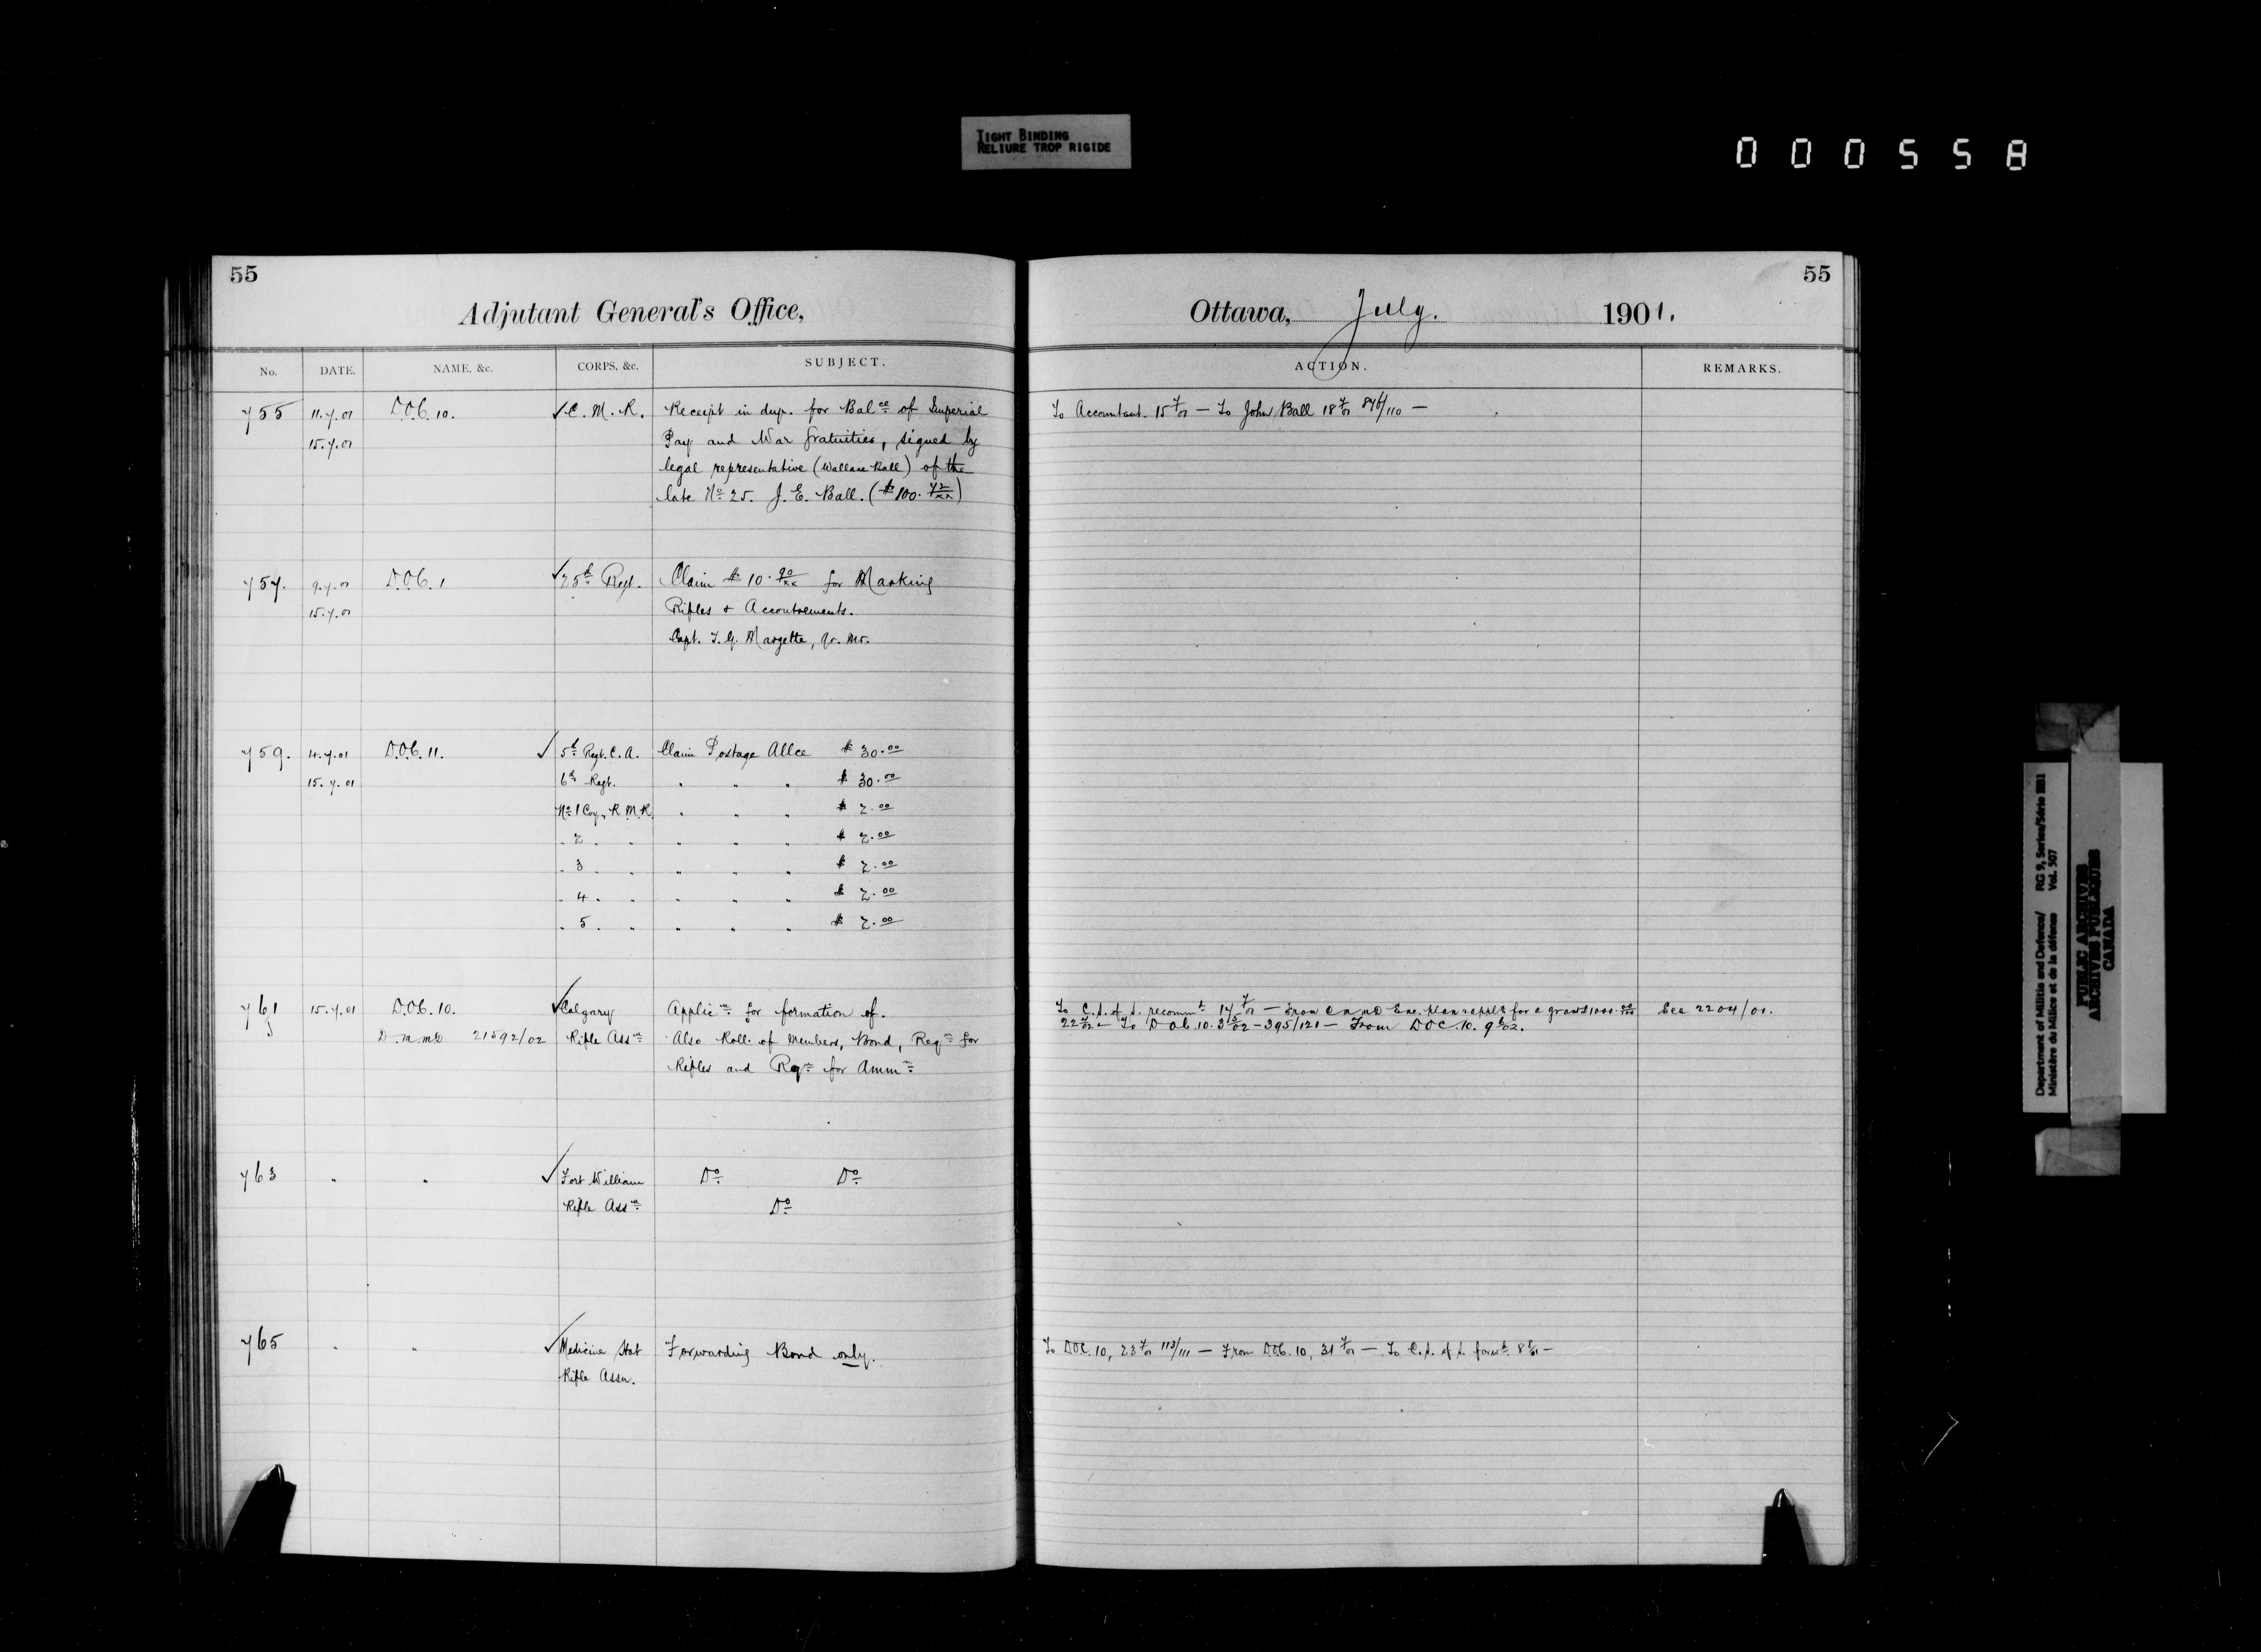 TIGHT BINDING
RELIURE TROP RIGIDE
000558
55
Adjutant General's Office,
No. DATE. NAME, &c. CORPS, &c. SUBJECT.
755 11.7.01 D.O.C. 10. ✓ C. M. R. Receipt in dup. for Balce of Imperial
15.7.01 Pay and War Gratuities, signed by
legal representative (Wallace Ball) of the
late No 25. J. E. Ball. ($100.72/xx)
757. 9.7.01 D.O.C. 1 ✓ 25th Regt. Claim $10.90/xx for Marking
15.7.01 Rifles & Accoutrements.
Capt. Margetts, Qr. Mr.
759. 4.7.01 D.O.C. 11. ✓ 5th Regt. C. A. Claim Postage Allce $ 30.00
15.7.01 6th Regt. " " " $ 30.00
No 1 Coy., R.M.R. " " " $ 2.00
" 2 " " " " " $ 2.00
" 3 " " " " " $ 2.00
" 4 " " " " " $ 2.00
" 5 " " " " " $ 2.00
761 15.7.01 D.O.C. 10. ✓ Calgary Applicn for formation of.
D.M.M.D 21592/02 Rifle Assn Also Roll of Members, Bond, Reqn for
Rifles and Reqn for Ammn
763 " " ✓ Fort William Do Do
Rifle Assn Do
765 " " ✓ Medicine Hat Forwarding Bond only.
Rifle Assn.
55
Ottawa, July. 1901.
ACTION. REMARKS.
To Accountant. 15/7/01 — To John Ball 18/7/01 846/110 —
To C.S. of S. recommd 17/7/01 — From plan & appln for a grant $1000 See 2204/01.
To D.O.C. 10. 395/121 — From D.O.C. 10.
To D.O.C. 10, 23/7/01 113/111 — From D.O.C. 10, 31/7/01 — To C.S. of S. forwd. 8/8/01 —
Department of Militia and Defence/ RG 9, Series/Série IIB1
Ministère du Milice et de la défense Vol. 507
PUBLIC ARCHIVES
ARCHIVES PUBLIQUES
CANADA